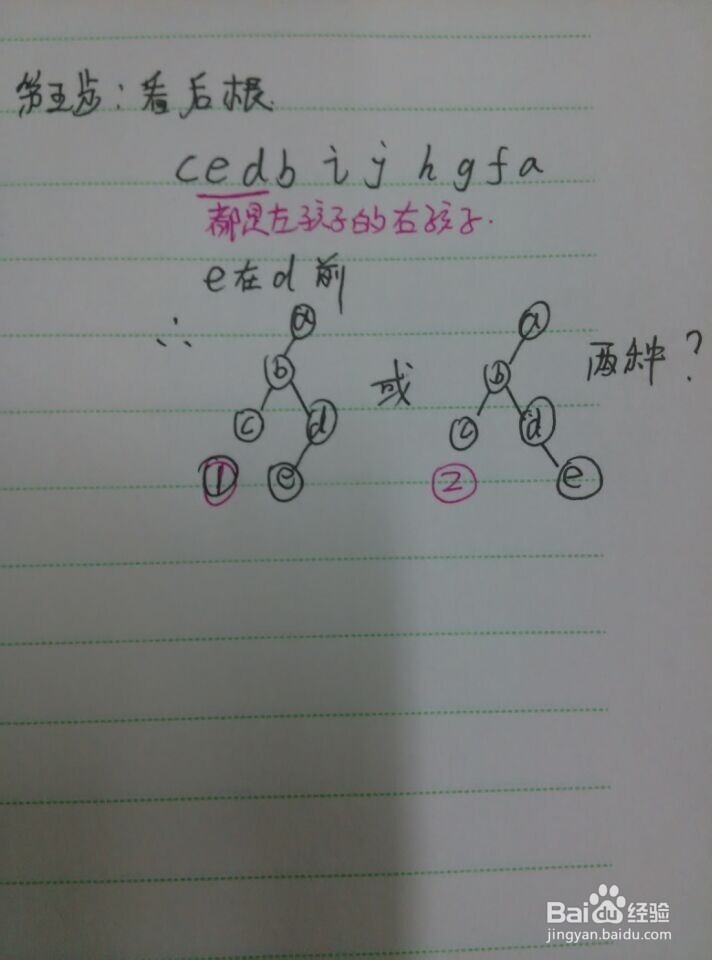 第五步：看后根
c e d b i j h g f a
都是左孩子的右孩子.
e在d前
∴
a a
b 或 b 两种？
c d c d
① e ② e
Baidu经验
jingyan.baidu.com